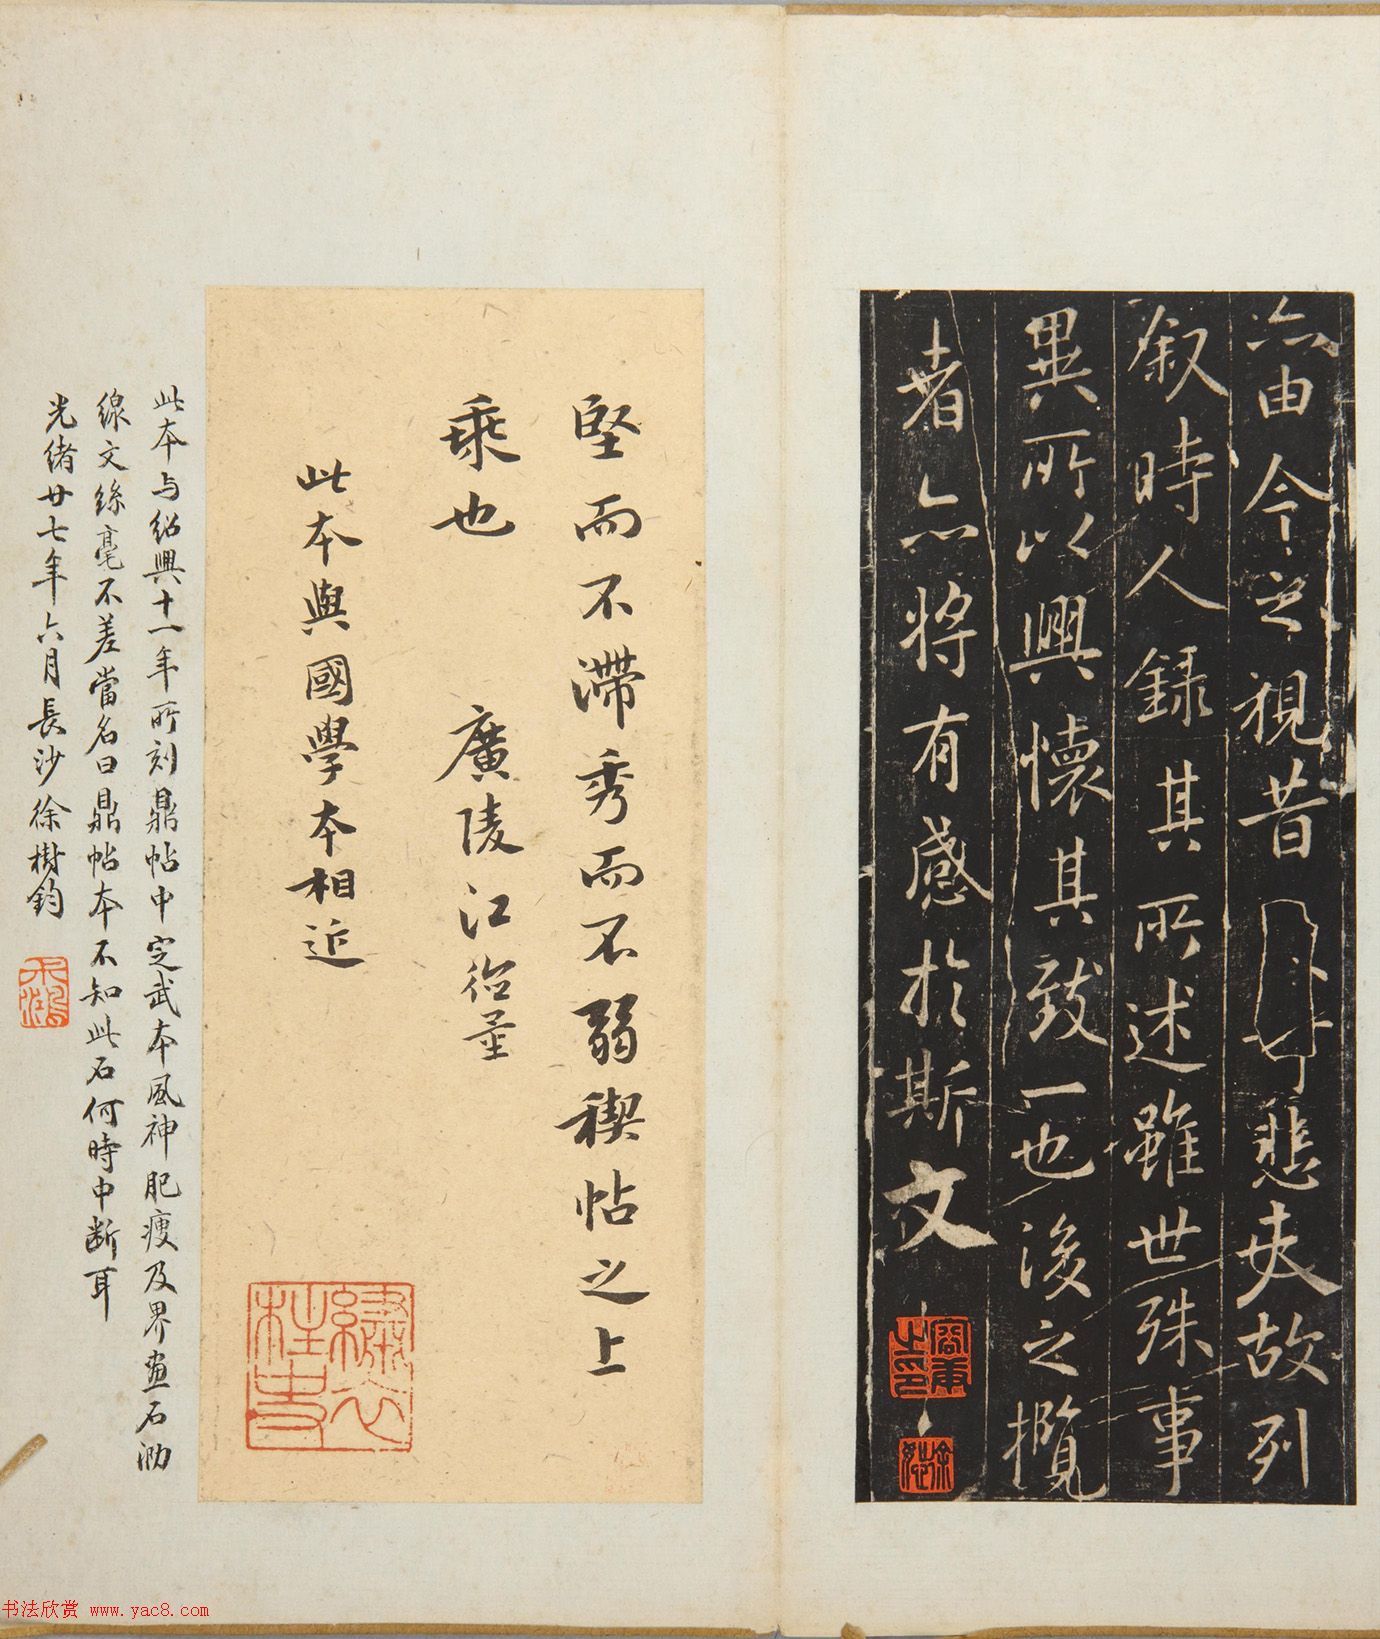 亦由今之視昔 悲夫故列
叙時人錄其所述雖世殊事
異所以興懷其致一也後之攬
者亦將有感於斯文
堅而不滯秀而不弱稧帖之上
乘也 廣陵江
此本與國學本相近
此本与紹興十一年所刻鼎帖中定武本風神肥瘦及界畫石泐
線文絲毫不差當名曰鼎帖本不知此石何時中断耳
光緒廿七年六月長沙徐樹鈞
书法欣赏 www.yac8.com